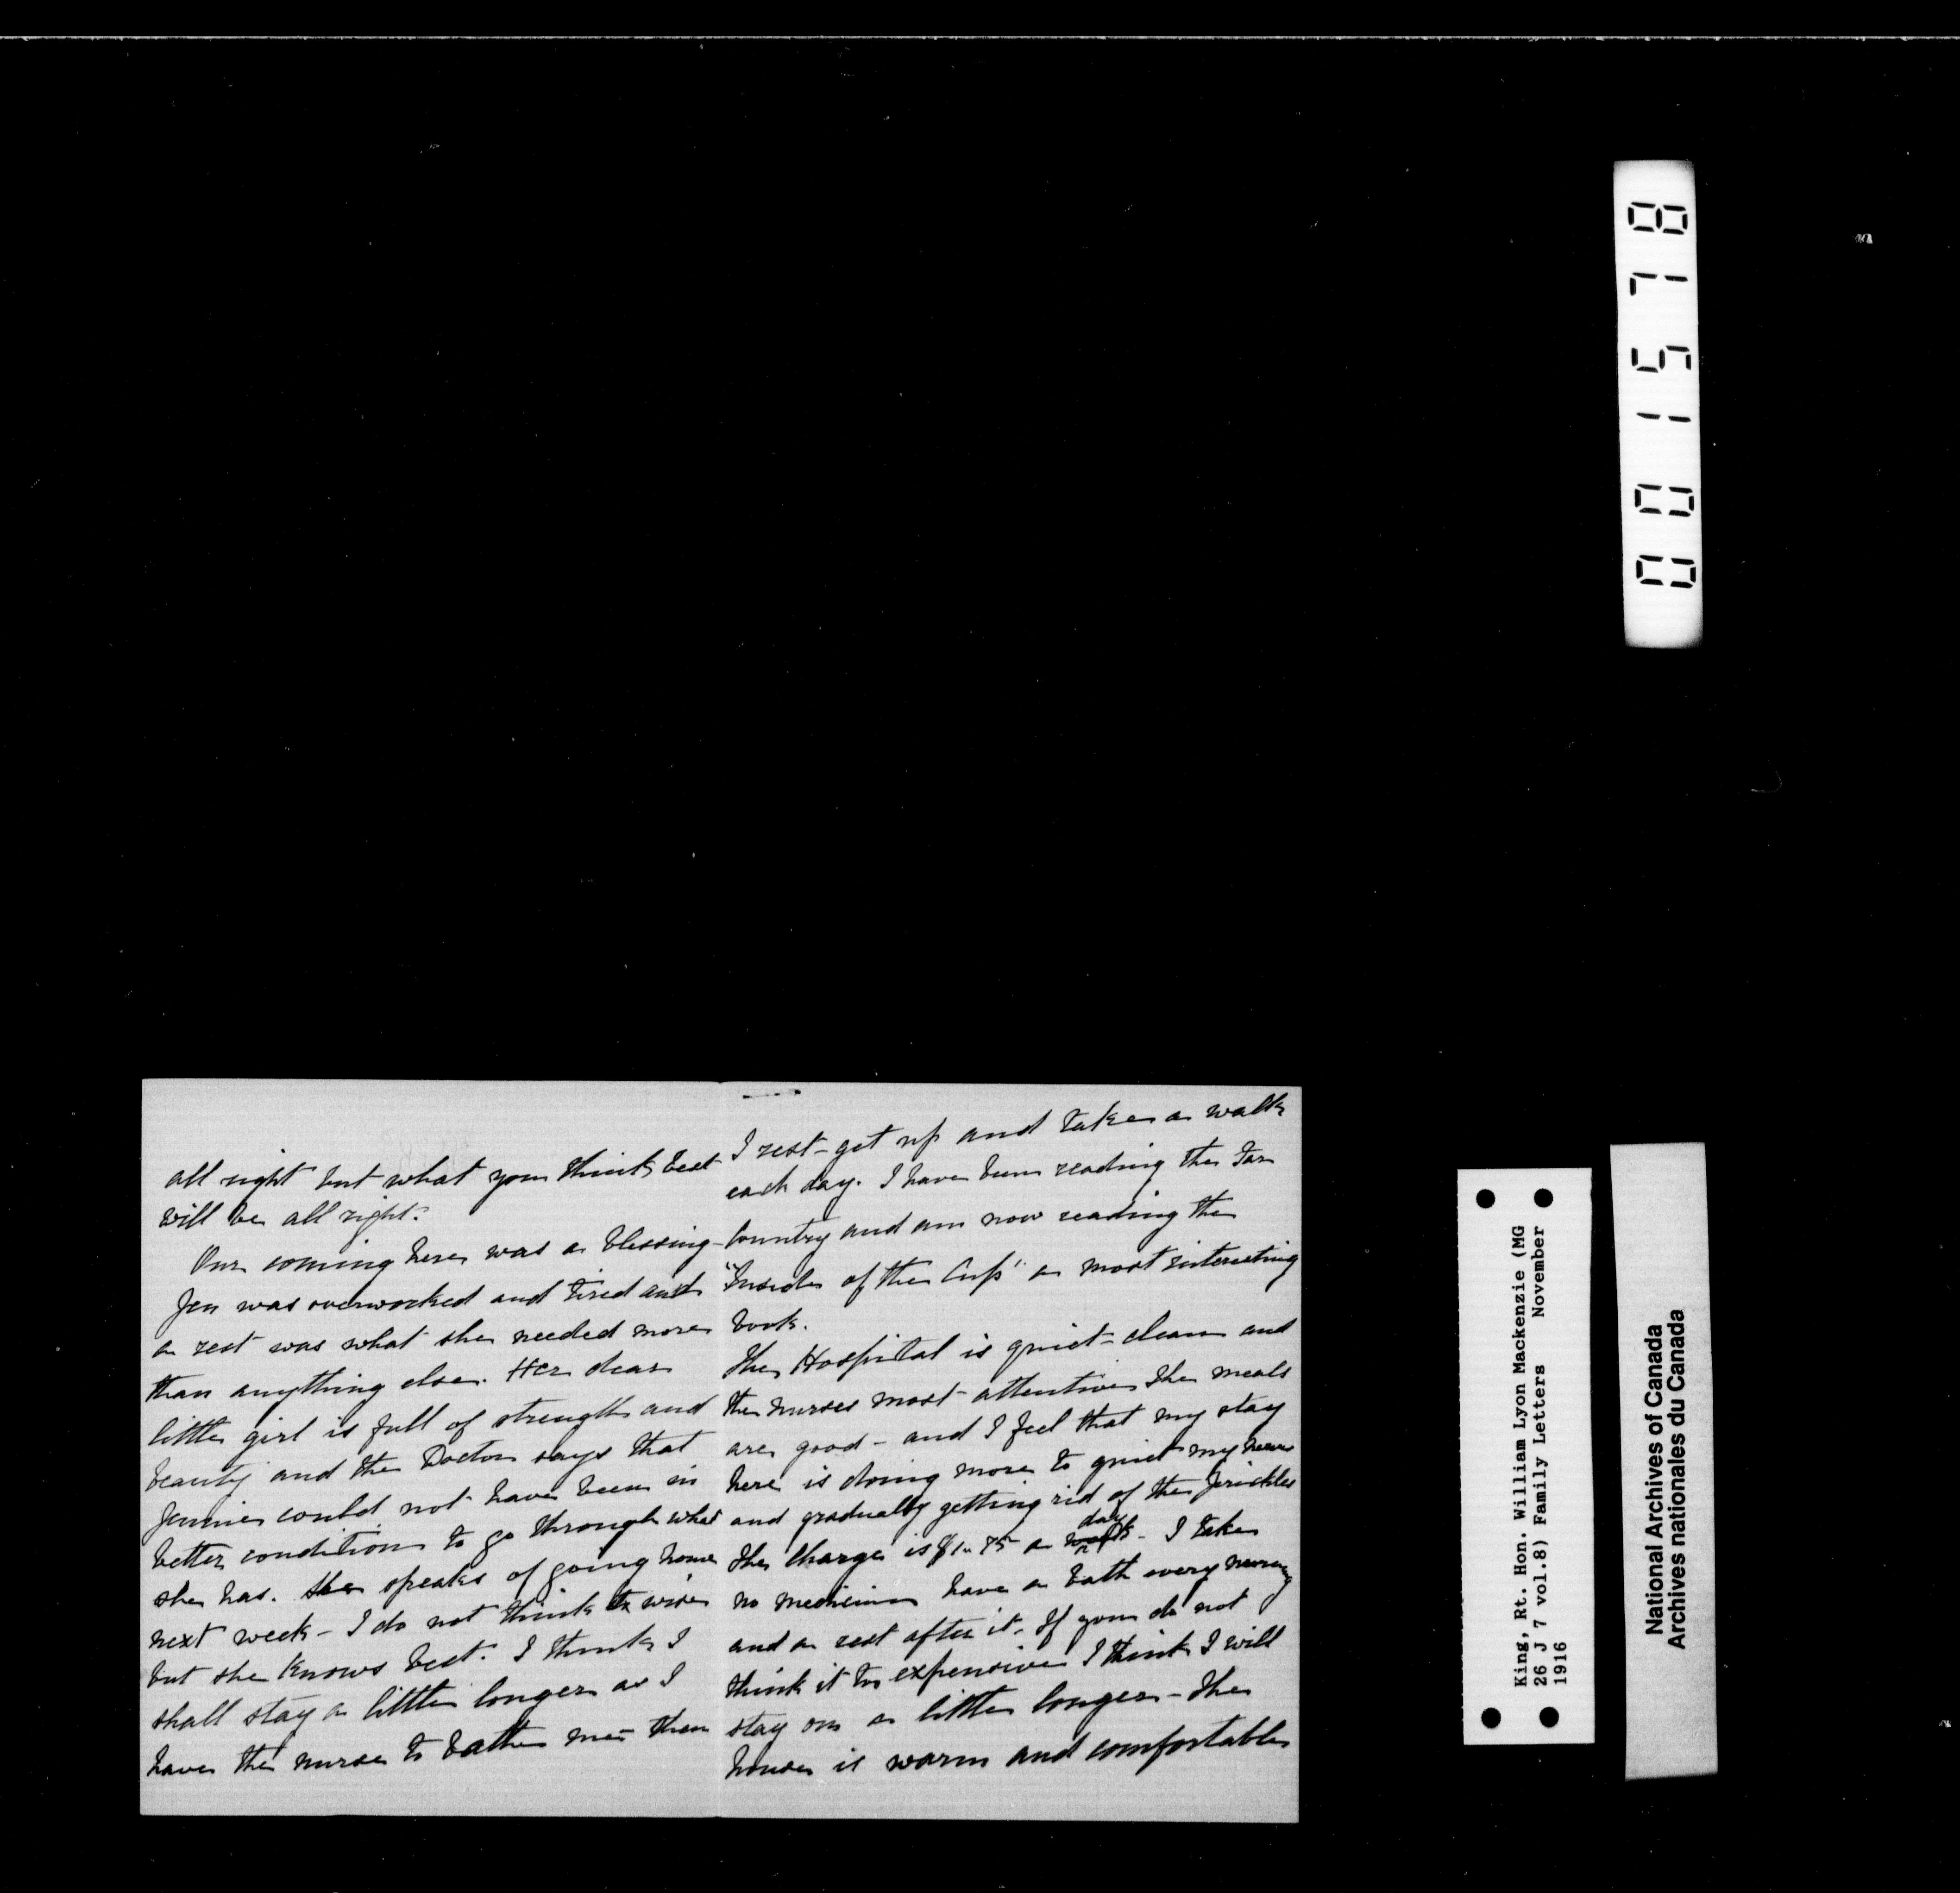 all right but what you think best
will be all right.
Our coming here was a blessing -
Jen was overworked and tired and
a rest was what she needed more
than anything else. Her dear
little girl is full of strength and
beauty and the Doctor says that
Jennie could not have been in
better condition to go through what
she has. She speaks of going home
next week - I do not think it wise
but she knows best. I think I
shall stay a little longer as I
have the nurse to bathe me then
I rest - get up and take a walk
each day. I have been reading the Far
Country and am now reading the
"Inside of the Cup" a most interesting
book.
The Hospital is quiet - clean and
the nurses most attentive The meals
are good - and I feel that my stay
here is doing more to quiet my nerves
and gradually getting rid of the
day
The charge is a week - I take
no medicine have a bath every morning
and a rest after it. If you do not
think it too expensive I think I will
stay on a little longer - The
house is warm and comfortable
0 0 1 5 7 8
King, Rt. Hon. William Lyon Mackenzie (MG
26 J 7 vol.8) Family Letters November
1916
National Archives of Canada
Archives nationales du Canada